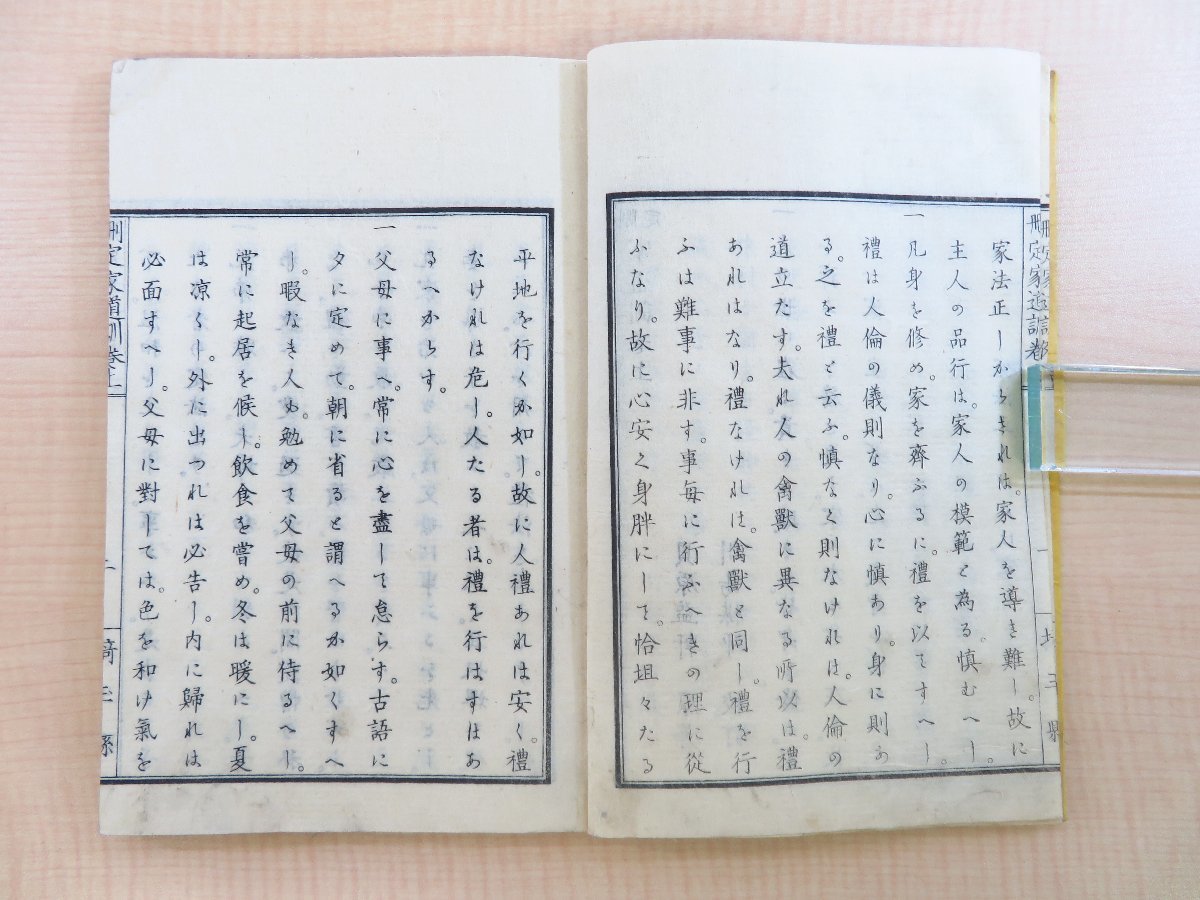 刪定家道訓卷上
家法正しからされは。家人を導き難し。故に
主人の品行は。家人の模範と為る。慎むへし。
一凡身を修め。家を齊ふるに。禮を以てすへし。
禮は人倫の儀則なり。心に慎あり。身に則あ
る。之を禮と云ふ。慎なく則なけれは。人倫の
道立たす。夫れ人の禽獸に異なる所以は。禮
あれはなり。禮なけれは。禽獸と同し。禮を行
ふは難事に非す。事每に行ふへきの理に從
ふなり。故に心安く身胖にして。恰坦々たる
一
埼玉縣
平地を行くか如し。故に人禮あれは安く。禮
なけれは危し。人たる者は。禮を行はすはあ
るへからす。
一父母に事へ。常に心を盡して怠らす。古語に
夕に定めて。朝に省ると謂へるか如くすへ
し。暇なき人も。勉めて父母の前に侍るへし。
常に起居を候し。飲食を嘗め。冬は暖にし。夏
は凉くし。外に出つれは必告し。内に歸れは
必面すへし。父母に對しては。色を和け氣を
刪定家道訓卷上
二
埼玉縣